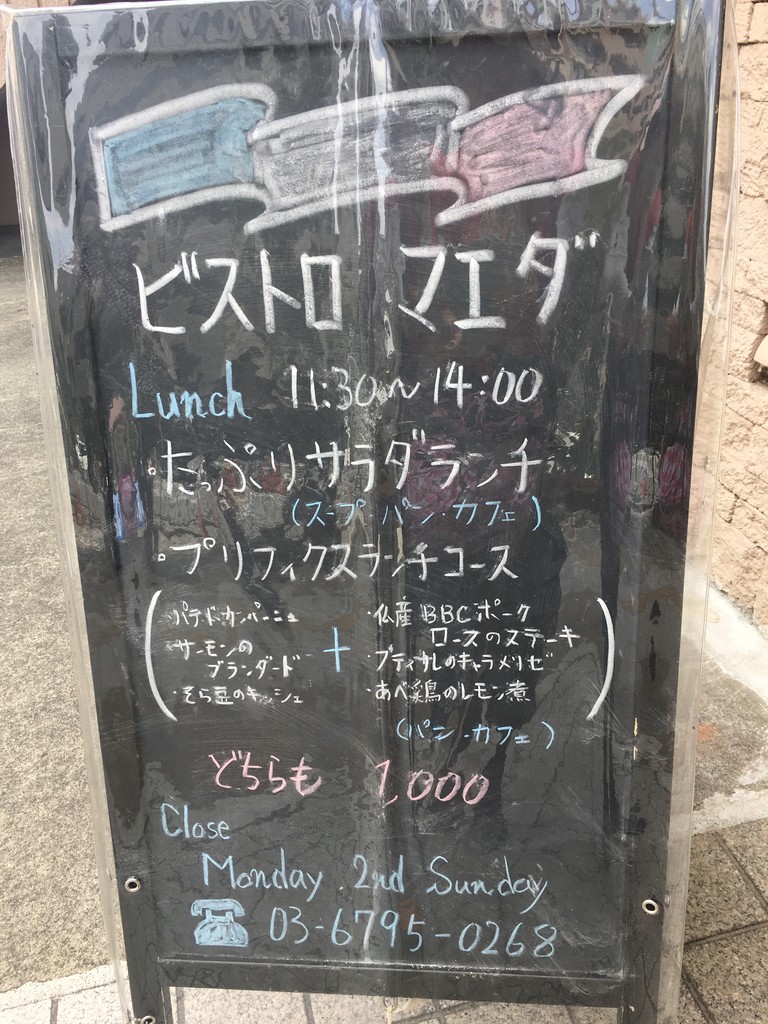 ビストロ マエダ
Lunch 11:30～14:00
・たっぷりサラダランチ
(スープ パン・カフェ)
・プリフィクスランチコース
・パテドカンパーニュ
・サーモンの
ブランダード
・そら豆のキッシュ
+
・仏産 BBC ポーク
ロースのステーキ
・プティサレのキャラメリゼ
・あべ鶏のレモン煮
(パン・カフェ)
どちらも 1,000
Close
Monday . 2nd Sunday
☎ 03-6795-0268